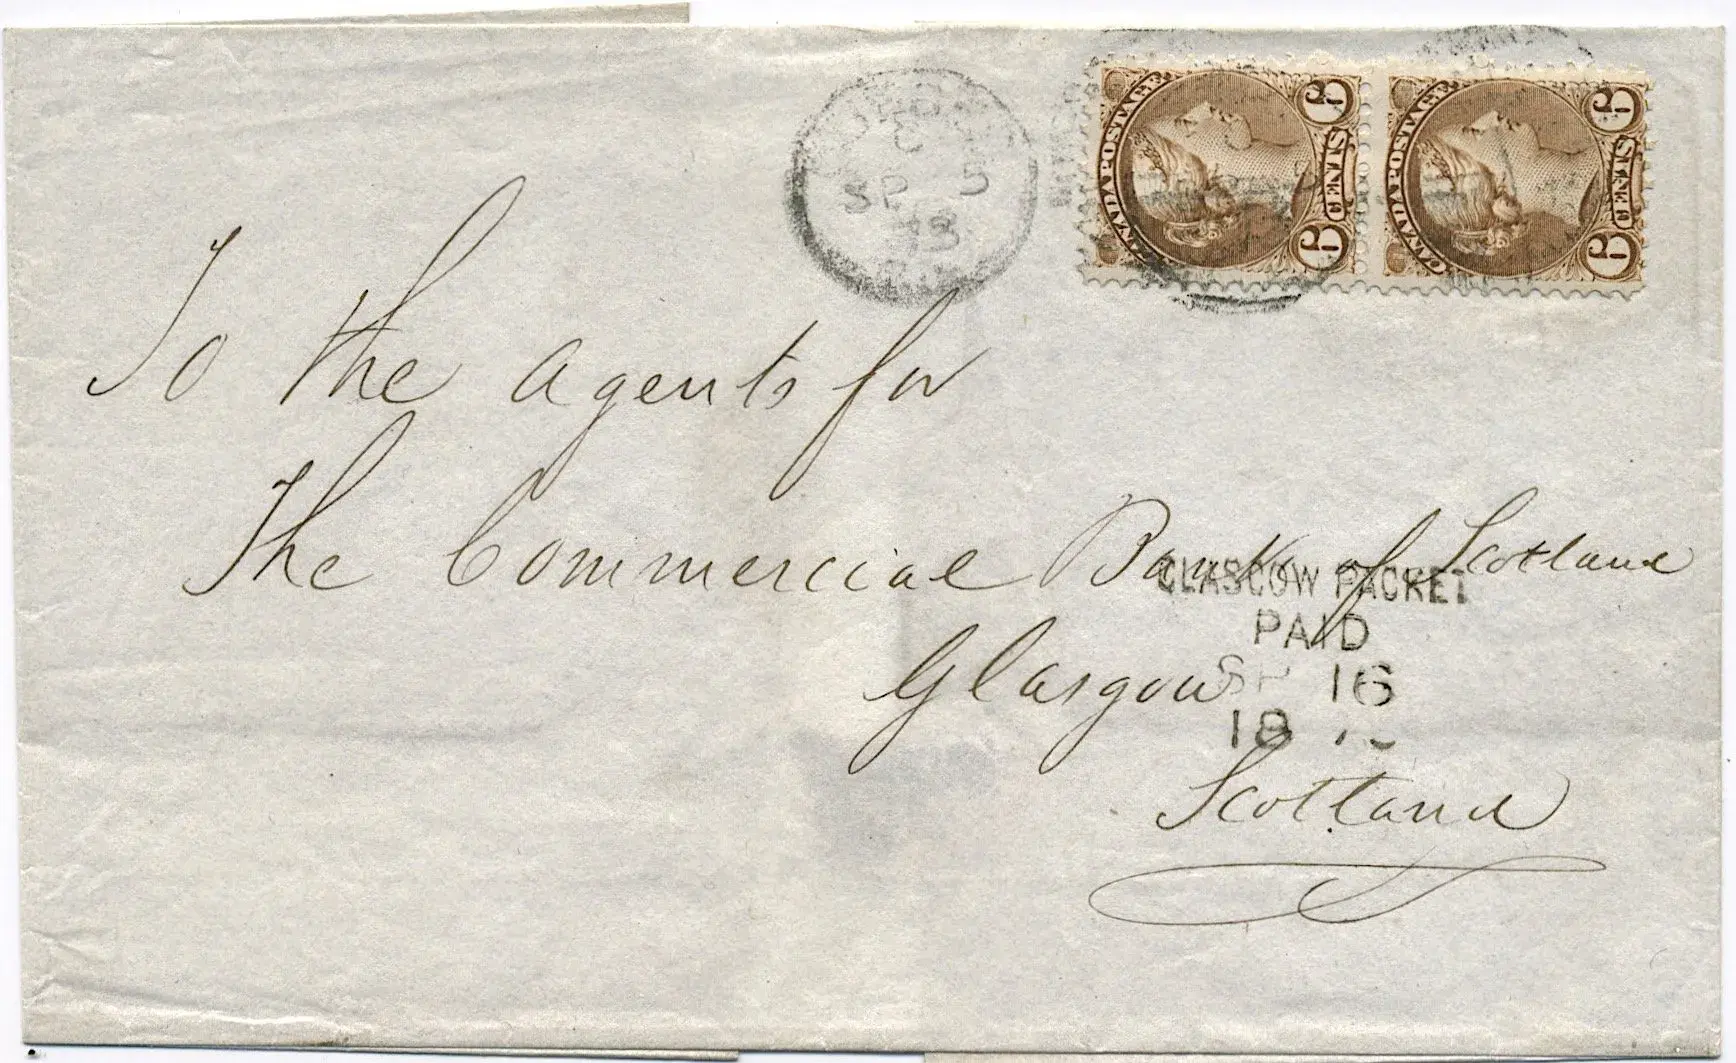 SP 5
73
CANADA POSTAGE
6 SIX CENTS 6
CANADA POSTAGE
6 SIX CENTS 6
To the agents for
The Commercial Bank of Scotland
GLASGOW PACKET
PAID
Glasgow
SP 16
18
Scotland